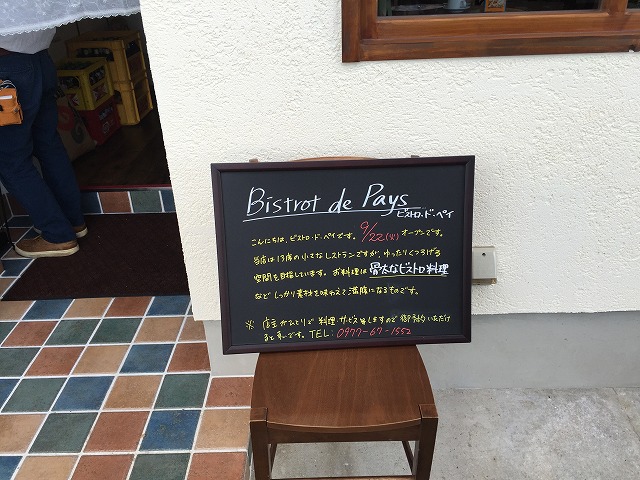 Bistrot de Pays
ビストロ・ド・ペイ
こんにちは、ビストロ・ド・ペイです。9/22(火)オープンです。
当店は13席の小さなレストランですが、ゆったりくつろげる
空間を目指しています。お料理は骨太なビストロ料理
など しっかり素材を味わえて満腹になるものです。
※ 店主がひとりで料理、サービス致しますので御予約いただけ
ると幸いです。TEL: 0977-67-1552